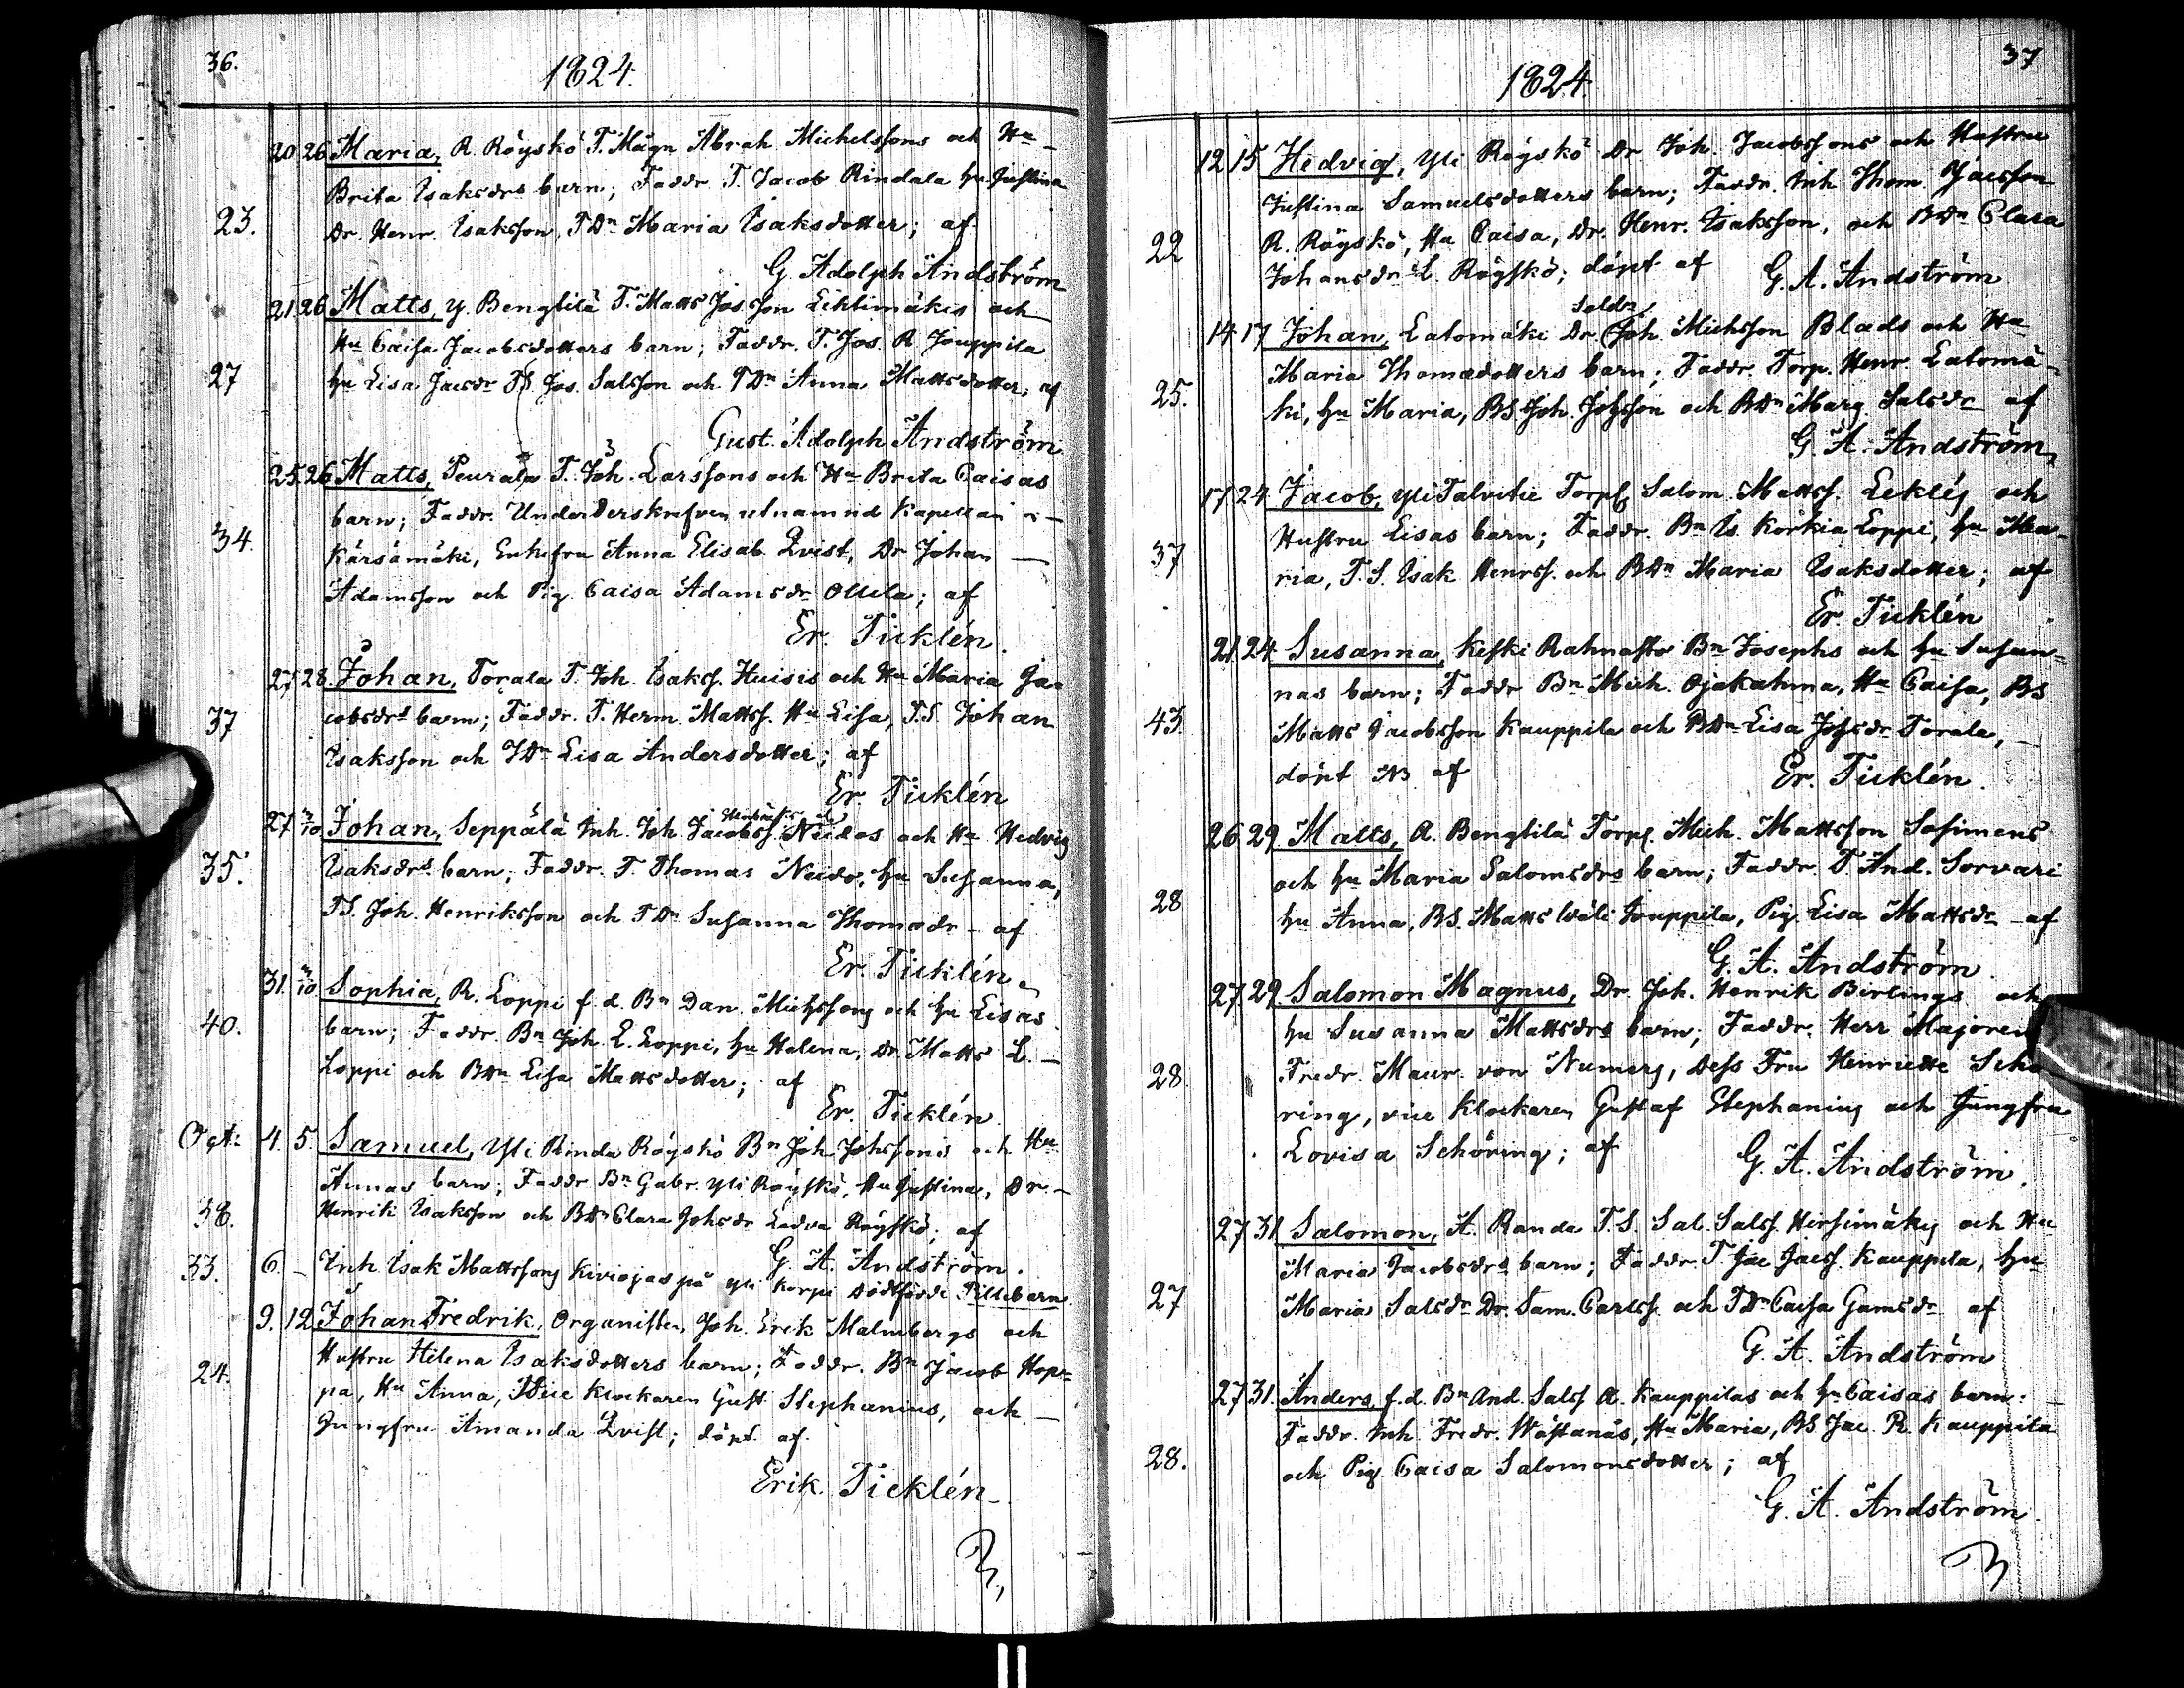 36.
1824.
20 26 Maria, R. Röyskö T. Mågn Abrah Michelssons och Hu
Brita Isaksdrs barn; Faddr. T. Jacob Rindala hu Justina
23. Dr. Henr. Isaksson, TDn Maria Isaksdotter; af
G. Adolph Andström
21 26 Matts, Y. Bengtilä T. Matts Jos.son Liklimäkis och
Hu Caisa Jacobsdotters barn; Faddr. T. Jos. R. Jouppila
27 hu Lisa Jacsdr TS Jos. Salsson och TDn Anna Mattsdotter; af
Gust. Adolph Andström
25. 26 Matts, Peurala T. Joh. Larssons och Hu Brita Caisas
barn; Faddr. Underskrefven utnämnd Kapellan i
34. Kärsämäki, Enkefru Anna Elisab. Qvist, Dr Johan
Adamsson och Pig. Caisa Adamsdr Ollila; af
Er. Ticklén.
27 28. Johan, Torala T. Joh. Isakss. Huisis och Hu Maria Ja-
37 cobsdrs barn; Faddr. T. Herm. Mattss. Hu Lisa, T.S. Johan
Isaksson och TDn Lisa Andersdotter; af
Er. Ticklén
27 3/10 Johan, Seppälä Inh. Joh. Jacobss. Neidos och Hu Hedvig
35. Isaksdrs barn; Faddr. T. Thomas Neido, hu Susanna,
TS. Joh. Henriksson och TDn Susanna Thomasdr - af
Er. Ticklén
31. 3/10 Sophia, R. Loppi f.d. Bn Dan. Michssons och hu Lisas
40. barn; Faddr. Bn Joh. L. Loppi, hu Helena, Dr. Matts L.
Loppi och BDn Lisa Mattsdotter; af
Er. Ticklén
Oct: 4. 5. Samuel, Yli Rinda Röyskö Bn Joh Johssons och Hu
Annas barn; Faddr. Bn Gabr. Yli Röyskö, Hu Justina, Dr.
38. Henrik Isaksson och BDn Clara Johsdr Ladva Röyskö; af
G. A. Andström.
33. 6. - Inh. Isak Mattssons Kiviojas på Yli Korpi dödfödde Pillebarn
9. 12. Johan Fredrik, Organisten, Joh. Erik Malmbergs och
24. Hustru Helena Isaksdotters barn; Faddr. Bn Jacob Hop-
pa, Hu Anna, Vice Klockaren Gust. Stephanius, och
Jungfru Amanda Qvist; döpt. af.
Erik. Ticklén
37
1824.
12 15 Hedvig, Yli Röyskö Dr Joh. Jacobssons och Hustru
Justina Samuelsdotters barn; Faddr. Inh Thom. Jacsson
22 R. Röyskö, Hu Caisa, Dr. Henr. Isaksson, och BDn Clara
Johansdr L. Röyskö; döpt af G. A. Andström
Soldn
14 17 Johan, Latomäki Dr Joh. Michsson Blads och Hu
Maria Thomædotters barn; Faddr. Torp. Henr. Latomä-
25. ki, hu Maria, BS Joh. Johsson och BDn Marg. Salsdr af
G. A. Andström
17 24. Jacob, Yli Talvitie Torps. Salom. Mattss. Leklés och
Hustru Lisas barn; Faddr. Bn Is. Körkiä Loppi, hu Ma-
37 ria, T.S. Isak Henrss. och BDn Maria Isaksdotter; af
Er. Ticklén
21. 24 Susanna, Keski Rahnasto Bn Josephs och hu Susan-
nas barn; Faddr Bn Mich. Ojakahma, Hu Caisa, BS
43. Matts Jacobsson Kauppila och BDn Lisa Johsdr Torala,
döpt N3 af Er. Ticklén.
26 29. Matts, A. Bengtilä Torp. Mich. Mattsson Sosimens
och hu Maria Salomsdrs barn; Faddr. T. And. Sorvari
28 hu Anna, BS. Matts Wäli Jouppila, Pig. Lisa Mattsdr af
G. A. Andström.
27. 29. Salomon Magnus, Dr. Joh. Henrik Birlings och
hu Susanna Mattsdrs barn; Faddr. Herr Majoren
28. Fredr. Maur. von Numers, dess Fru Henriette Schö
ring, vice Klockaren Gustaf Stephanius och Jungfru
Lovisa Schöring; af G. A. Andström.
27 31 Salomon, A. Randa T.S. Sal. Salss. Hirsimäkis och Hu
Maria Jacobsdrs barn; Faddr. T. Jac Jacss. Kauppila, hu
27 Maria Salsdr Dr. Sam. Carlss. och TDn Caisa Gamsdr af
G. A. Andström
27 31. Anders, f.d. Bn And. Salss A. Kauppilas och hu Caisas barn:
Faddr. Inh. Fredr. Wästanås, Hu Maria, BS Jac. R. Kauppila
28. och Pig Caisa Salomonsdotter; af
G. A. Andström.